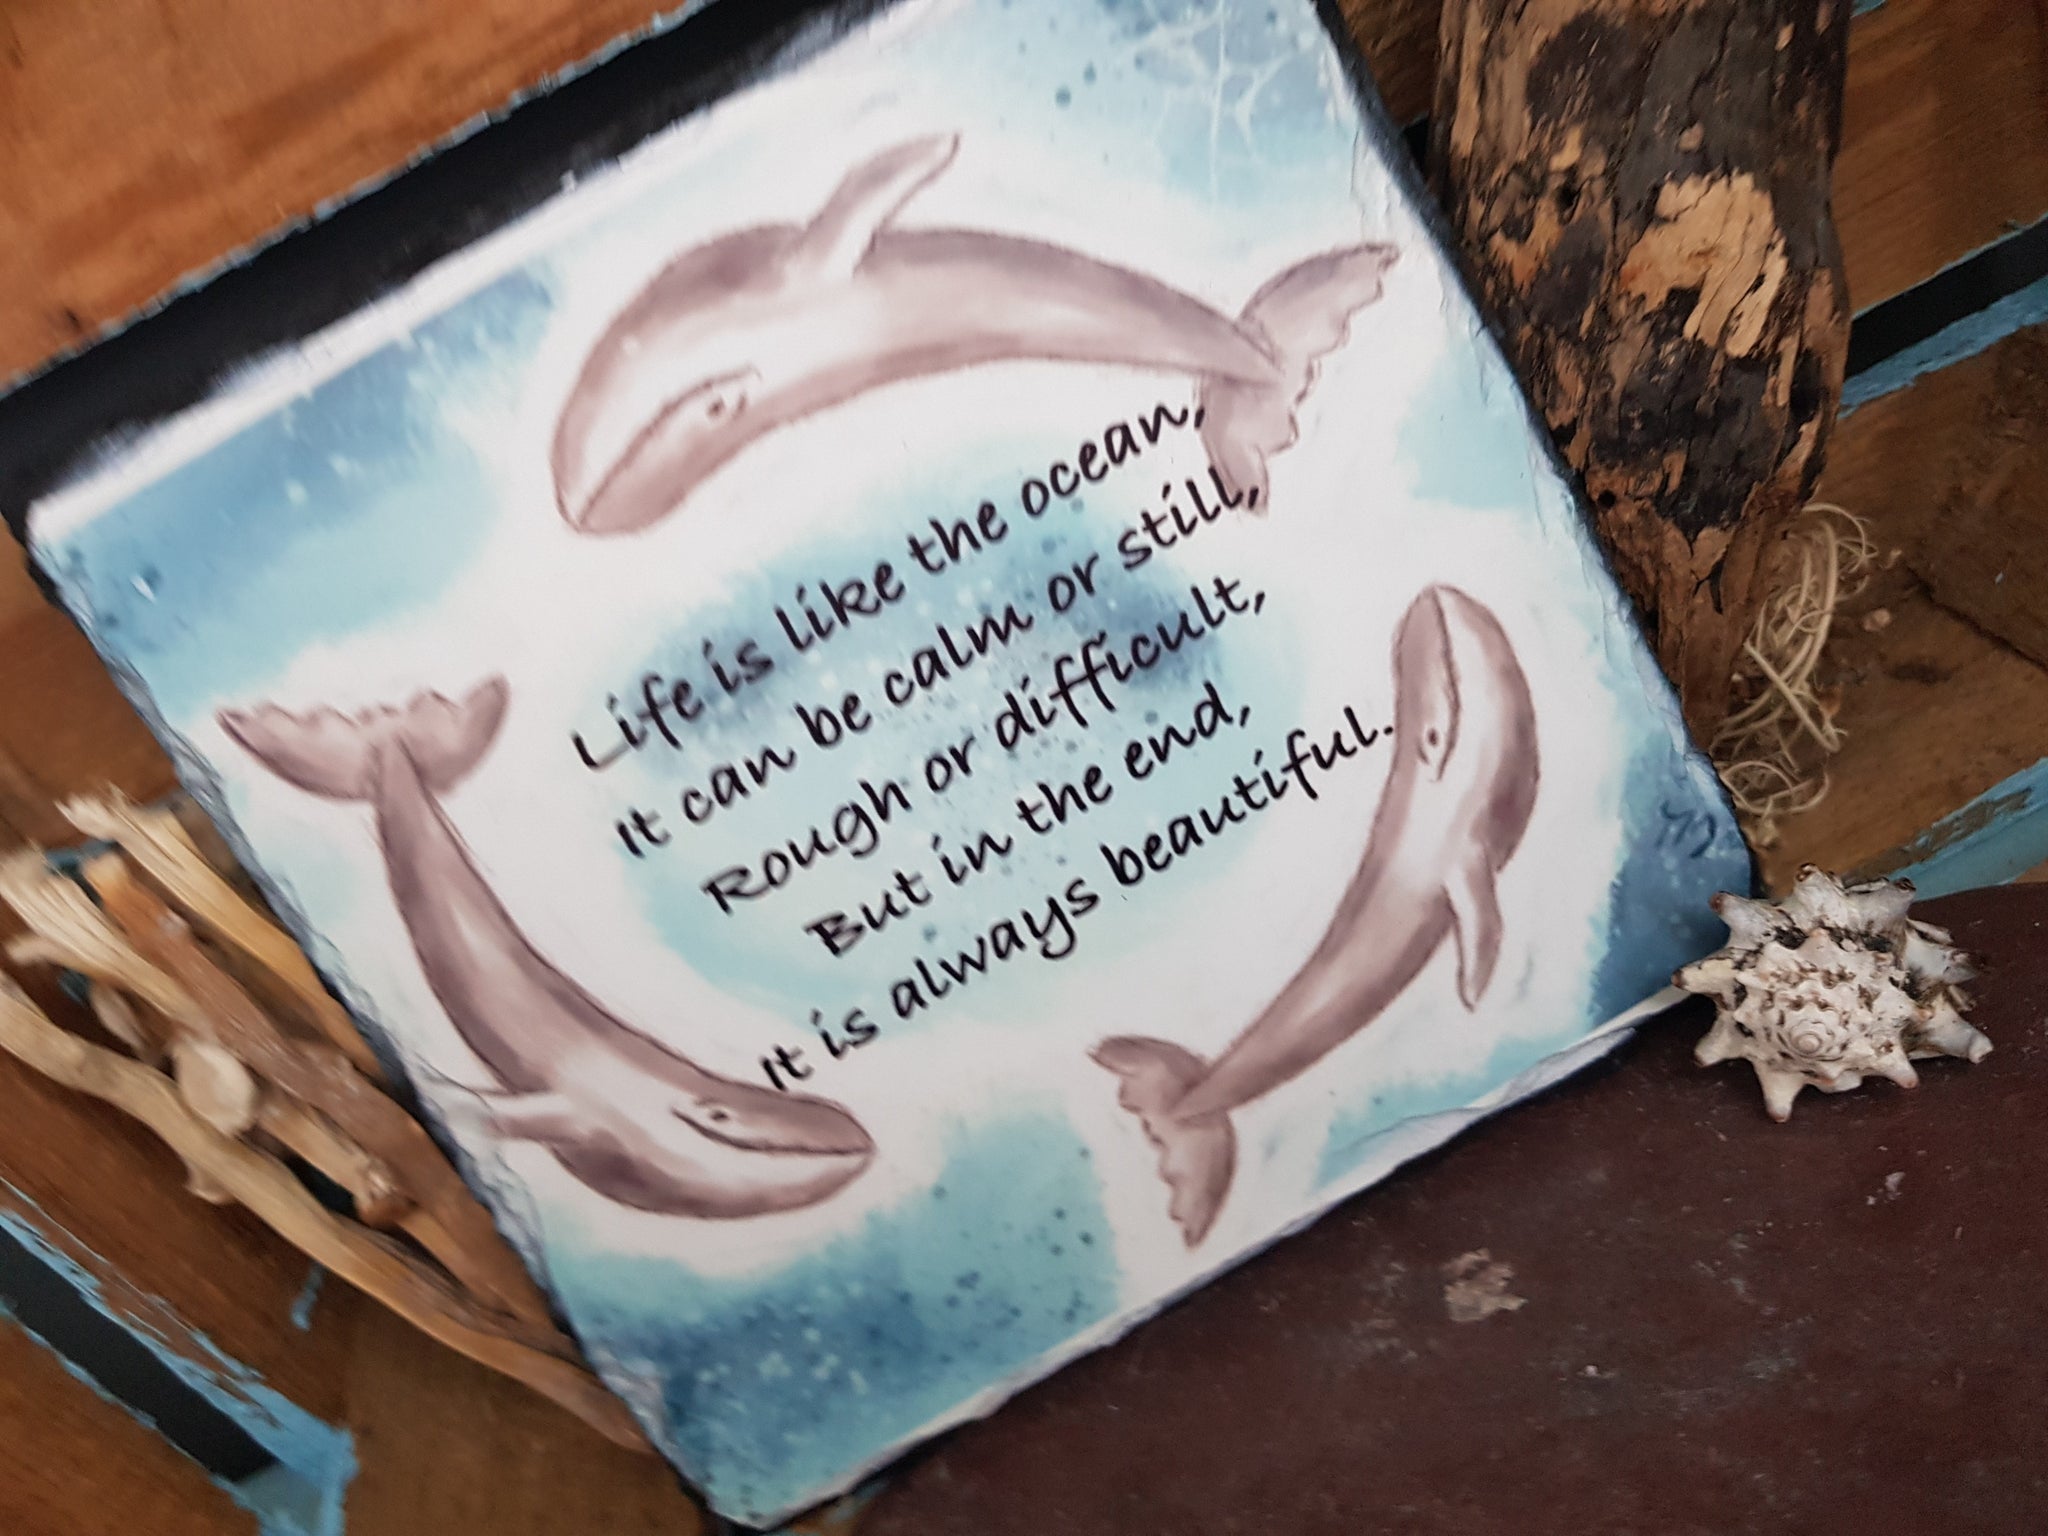 Life is like the ocean,
It can be calm or still,
Rough or difficult,
But in the end,
It is always beautiful.